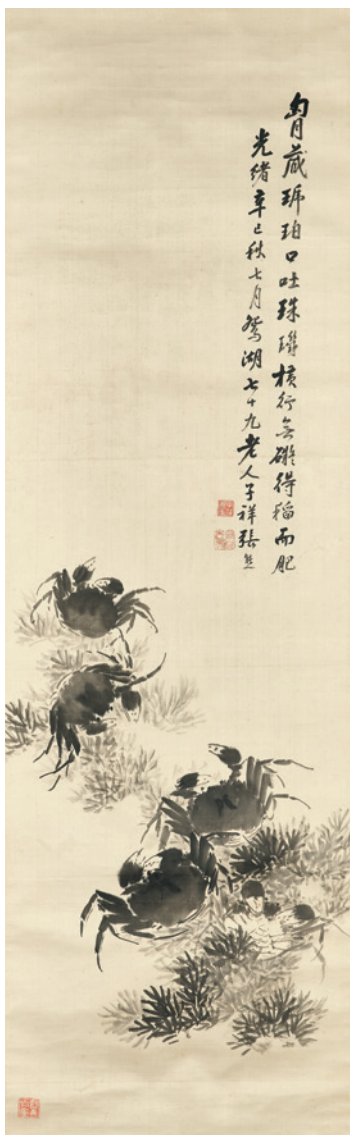 胷藏琥珀口吐珠璣橫行無礙得稻而肥
光緒辛巳秋七月鴛湖七十九老人子祥張熊